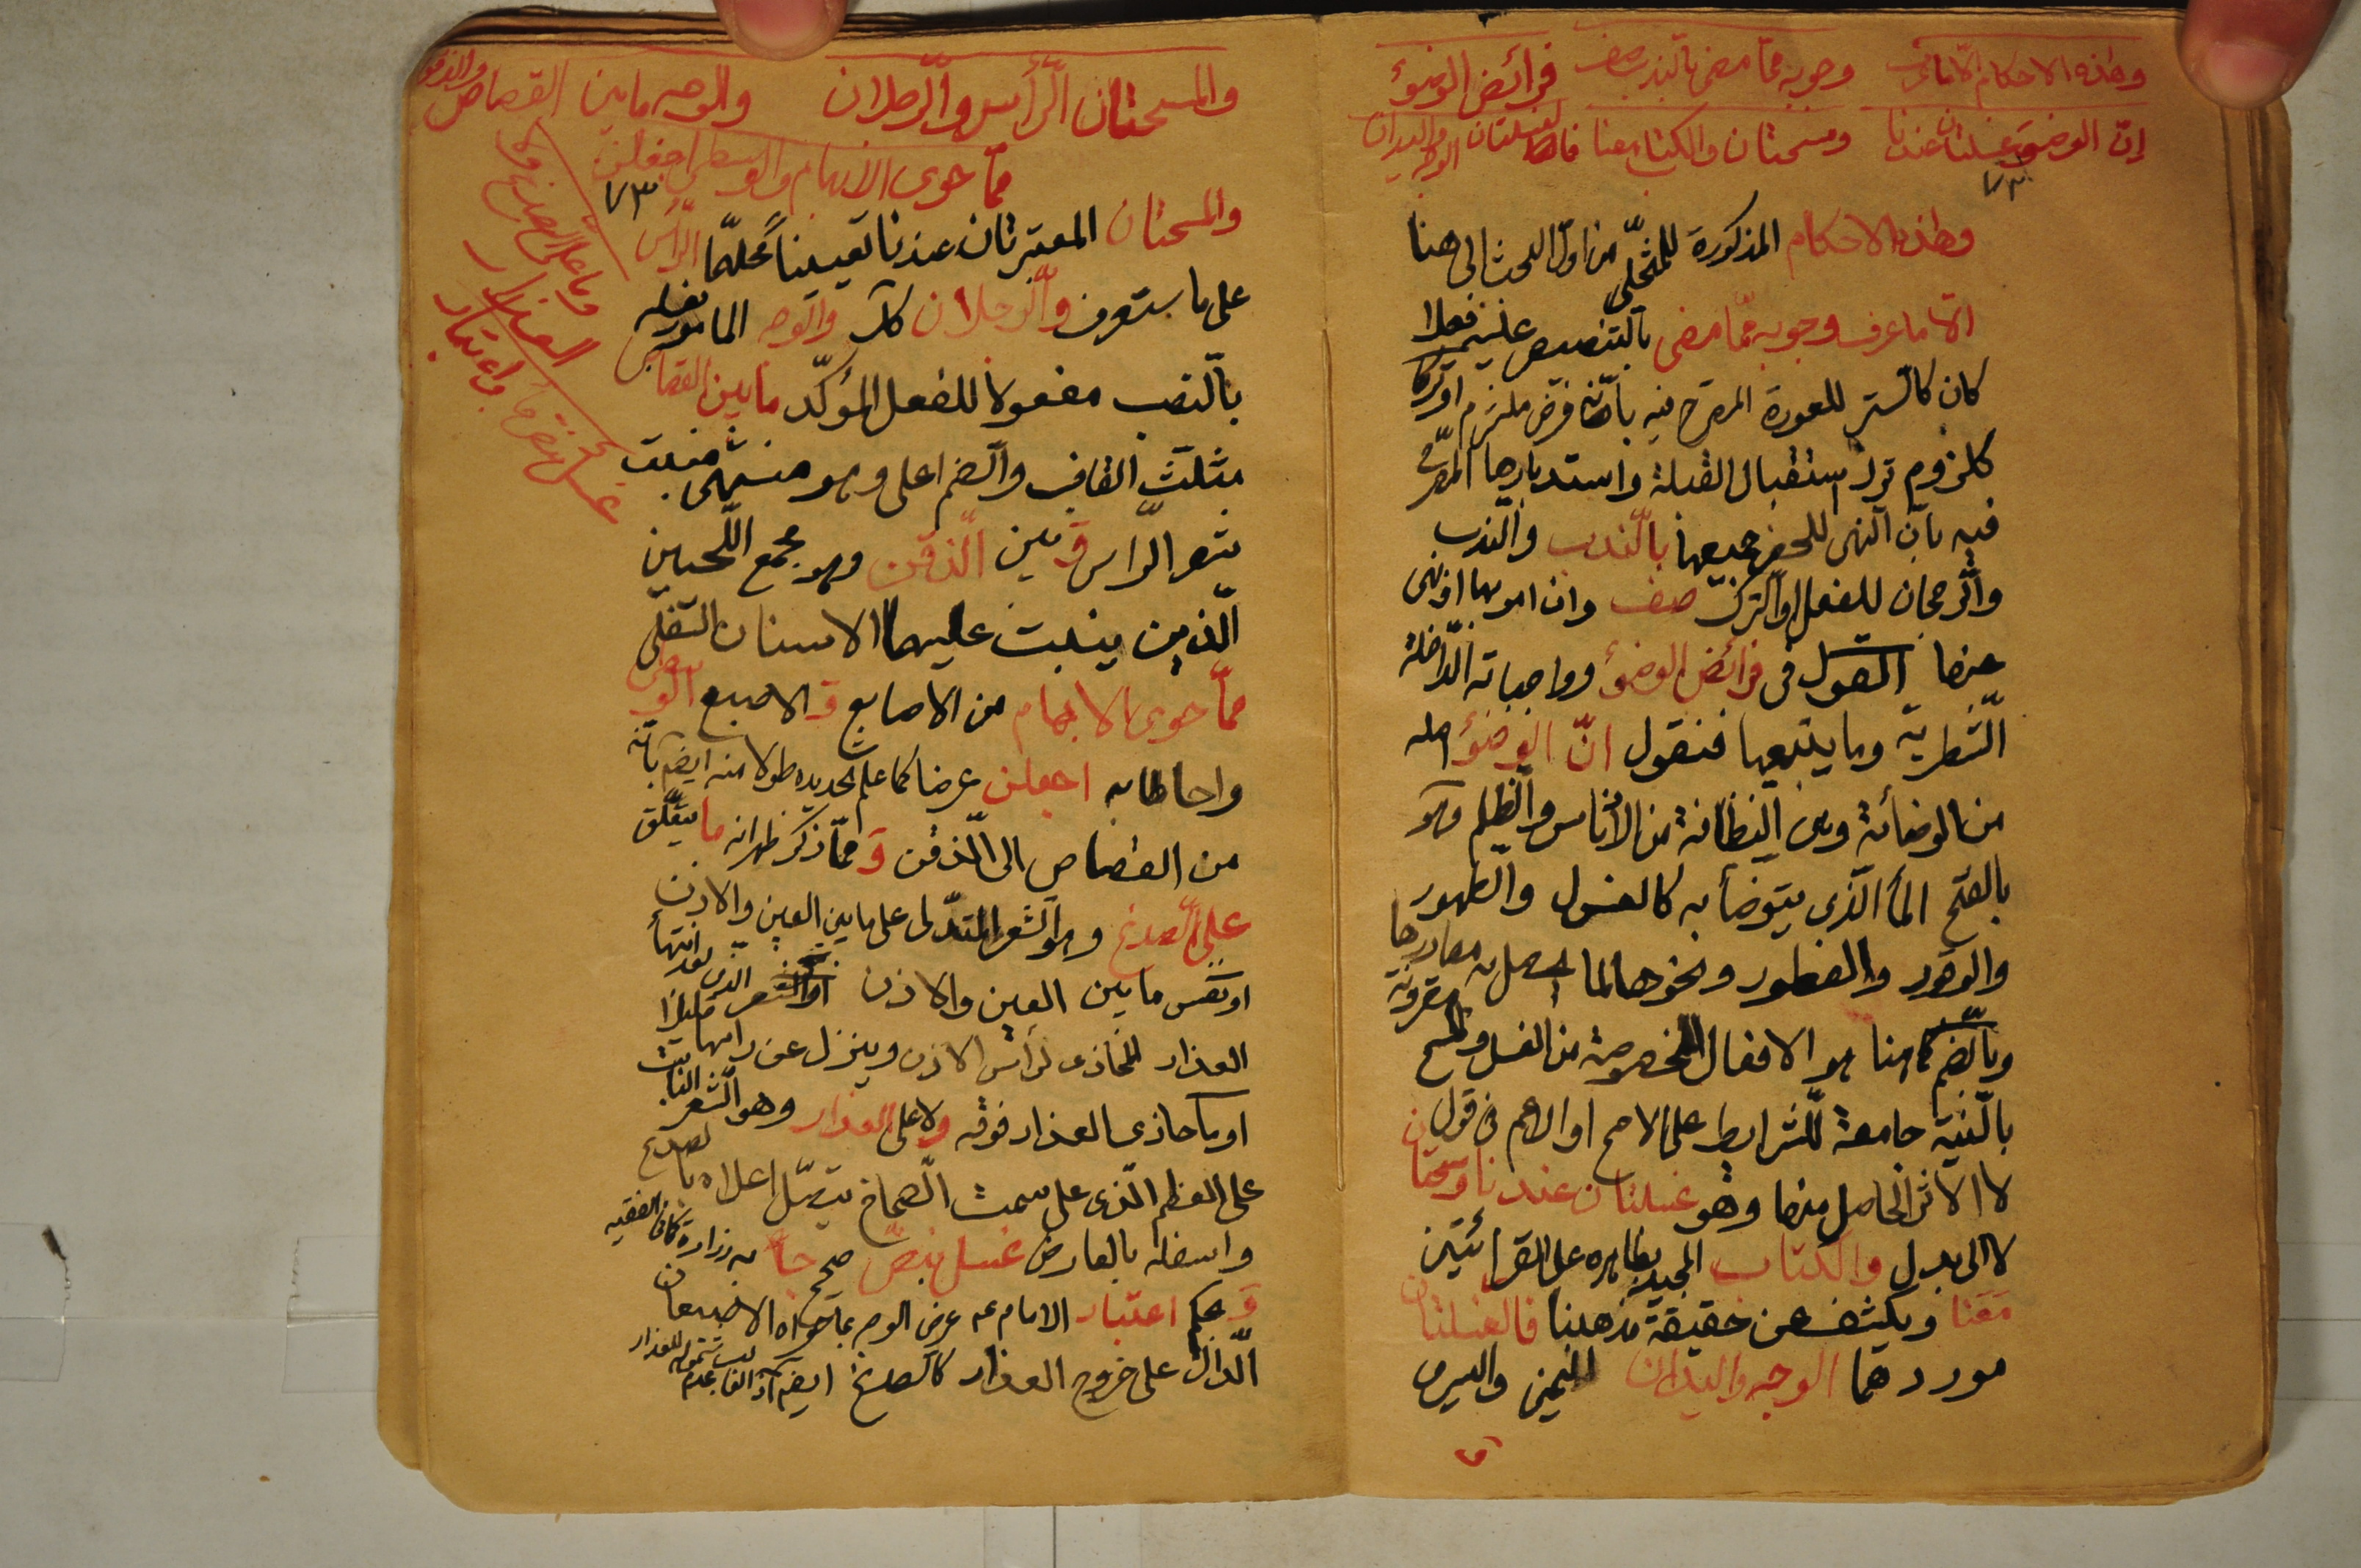 وهذه الاحكام الا ما عرف وجوبه مما مضى بالندب صف فرائض الوضوء
إن الوضوء غسلتان عندنا ومسحتان والكتاب معنا فالغسلتان الوجه واليدان
وهذه الاحكام المذكورة للمتخلي من اول البحث الى هنا
الا ما عرف وجوبه مما مضى بالتنصيص عليه فعلا
كان كالستر للعورة المصرح فيه بانه فرض ملتزم او تركا
كلزوم ترك استقبال القبلة واستدبارها المصرح
فيه بان النهى للحظر جميعها بالندب والندب
والرجحان للفعل او الترك صف وان امر بها او نهى
عنها القول فى فرائض الوضوء وواجباته الداخلة
الشطرية وما يتبعها فنقول ان الوضوء اصله
من الوضائة وهى النظافة من الادناس والظلم وهو
بالفتح الماء الذى يتوضأ به كالغسول والطهور
والوقود والفطور ونحوها لما يحصل به مصادرها مقرونة
وبالضم كما هنا هو الافعال المخصوصة من الغسل والمسح
بالنية جامعة للشرايط على الاصح او الاعم فى قول
لا الاثر الحاصل منها وهو غسلتان عندنا ومسحتان
لا الى بدل والكتاب المجيد بظاهره على القرائتين
معنا ويكشف عن حقيقة مذهبنا فالغسلتان
موردهما الوجه واليدان اليمنى واليسرى
والمسحتان الرأس والرجلان والوجه ما بين القصاص والذقن
مما حوى الابهام والوسطى اجعلن
وما على الصدغ ولا
العذار
غسل بنص
واعتبار
والمسحتان المعتبرتان عندنا تعيينا محلهما الرأس
على ما ستعرف والرجلان كلا والوجه المأمور بغسله
بالنصب مفعولا للفعل المؤكد ما بين القصاص
مثلث القاف والضم اعلى وهو منتهى منبت
شعر الراس و بين الذقن وهو مجمع اللحيين
الذين ينبت عليهما الاسنان السفلى
مما حوى الابهام من الاصابع و الاصبع الوسطى
واحاطا به اجعلن عرضا كما علم تحديده طولا منه ايضا بانه
من القصاص الى الذقن و مما ذكر ظهر انه ما يتعلق
على الصدغ وهو الشعر المتدلى على ما بين العين والاذن
او نفس ما بين العين والاذن او الشعر الذى بعد انتهاء
العذار المحاذى لرأس الاذن وينزل عن راسها قليلا
او ما حاذى العذار فوقه ولا على العذار وهو الشعر النابت
على العظم الذى على سمت الصماخ يتصل اعلاه بالصدغ
واسفله بالعارض غسل بنص صحيح جاء به زرارة كما فى الفقيه
و بحكم اعتبار الامام عه عرض الوجه بما حواه الاصبعان
الدال على خروج العذار كالصدغ ايضا